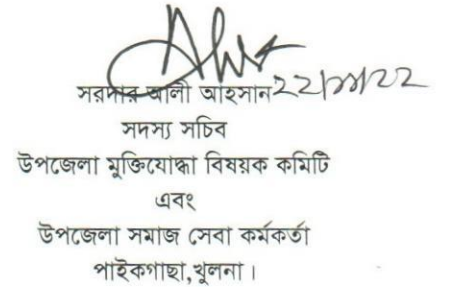 সরদার আলী আহসান ২২/১১/২২
সদস্য সচিব
উপজেলা মুক্তিযোদ্ধা বিষয়ক কমিটি
এবং
উপজেলা সমাজ সেবা কর্মকর্তা
পাইকগাছা,খুলনা।